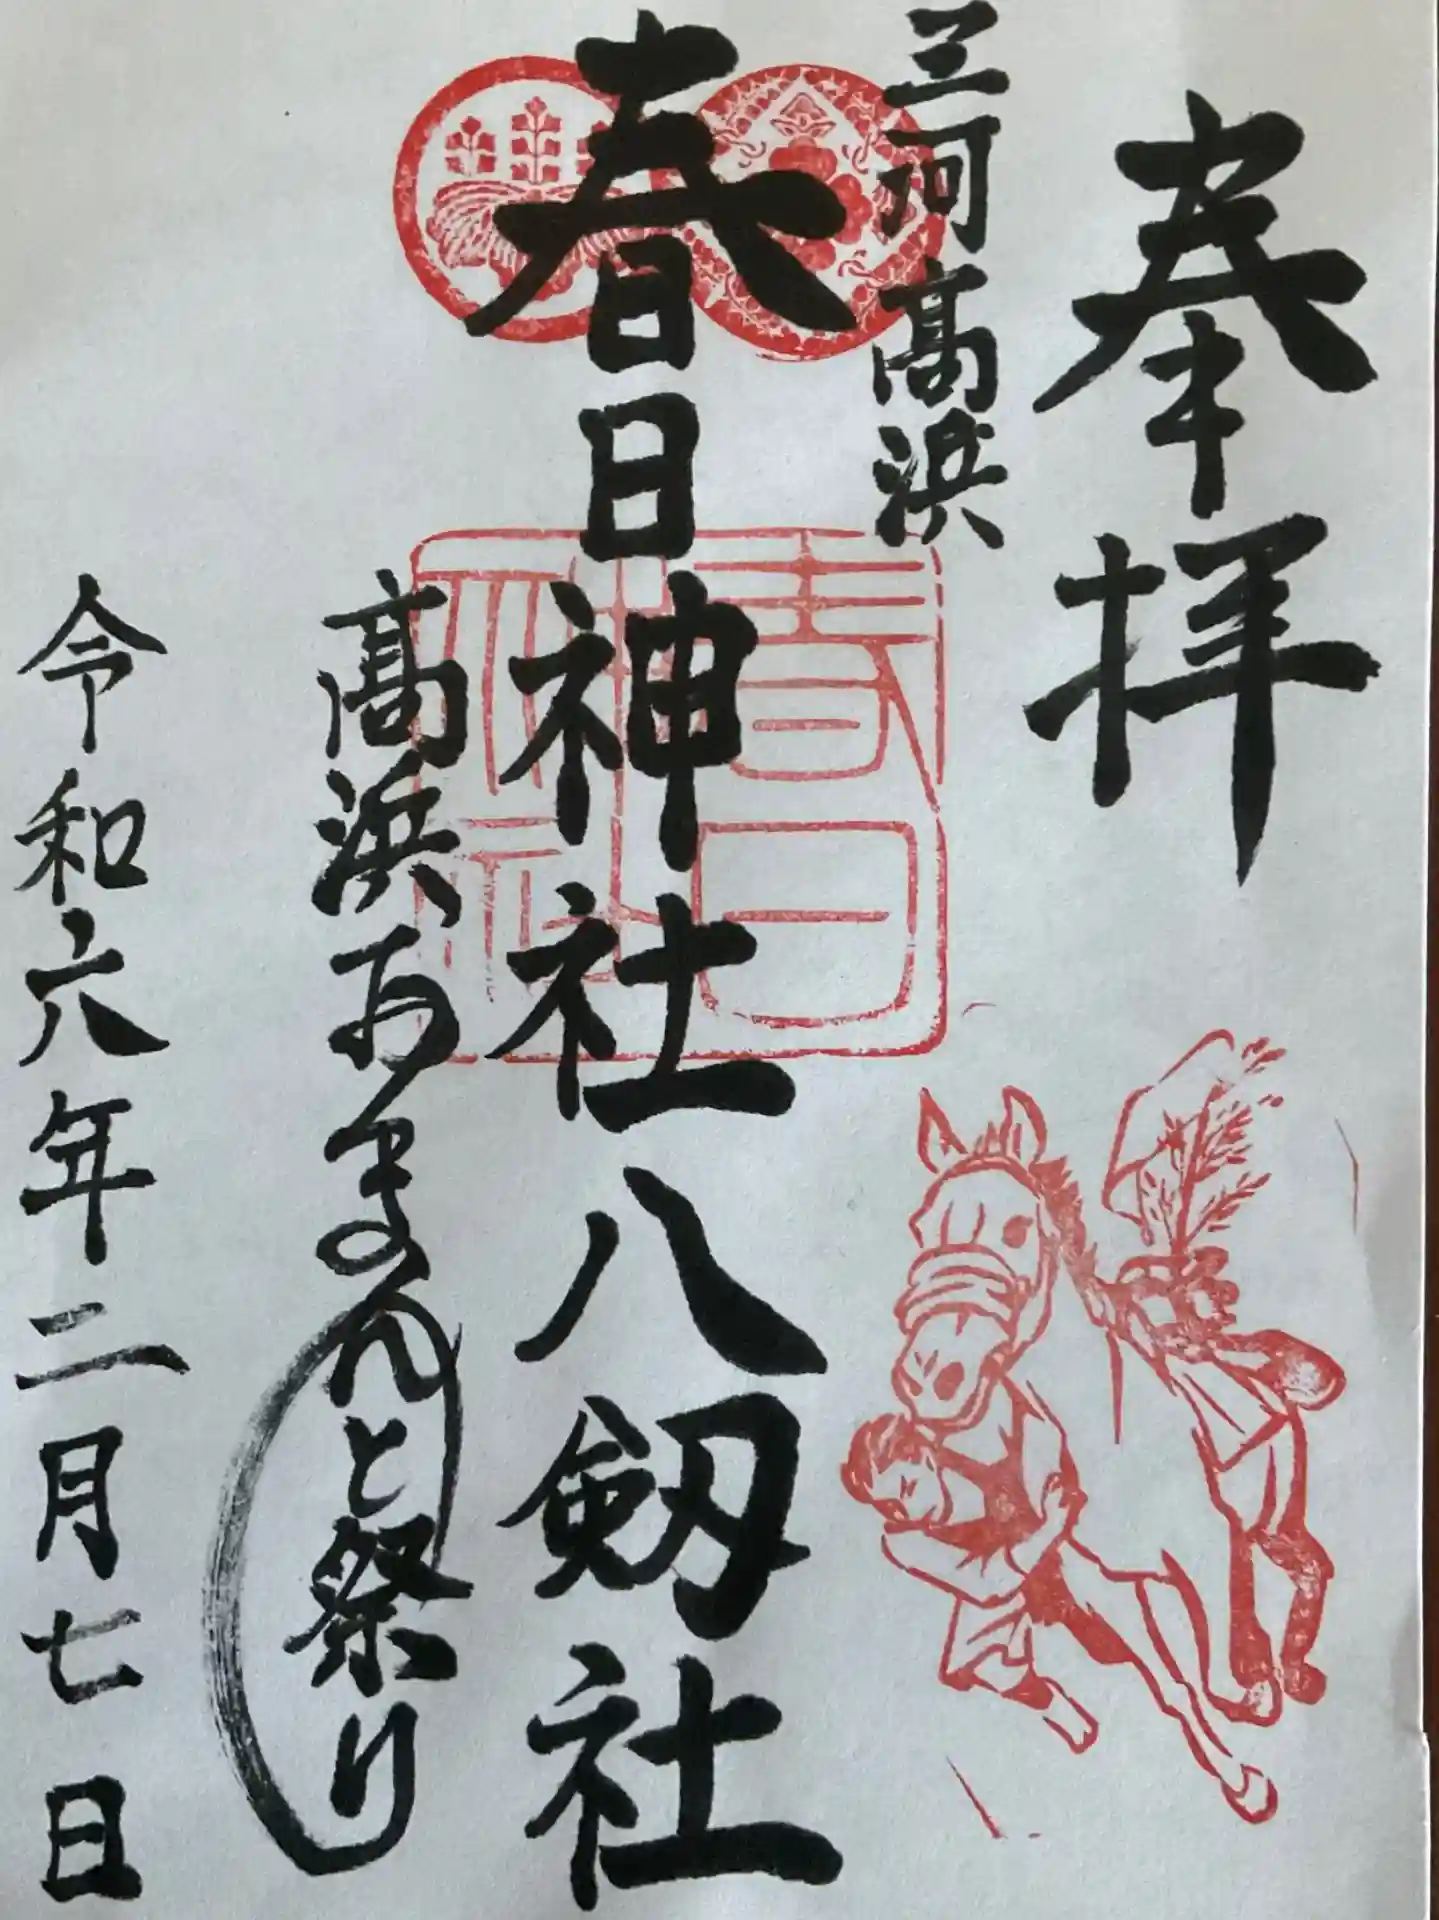 奉拝
三河髙浜
春日神社八剱社
髙浜おまんと祭り
令和六年二月七日
春日
神社